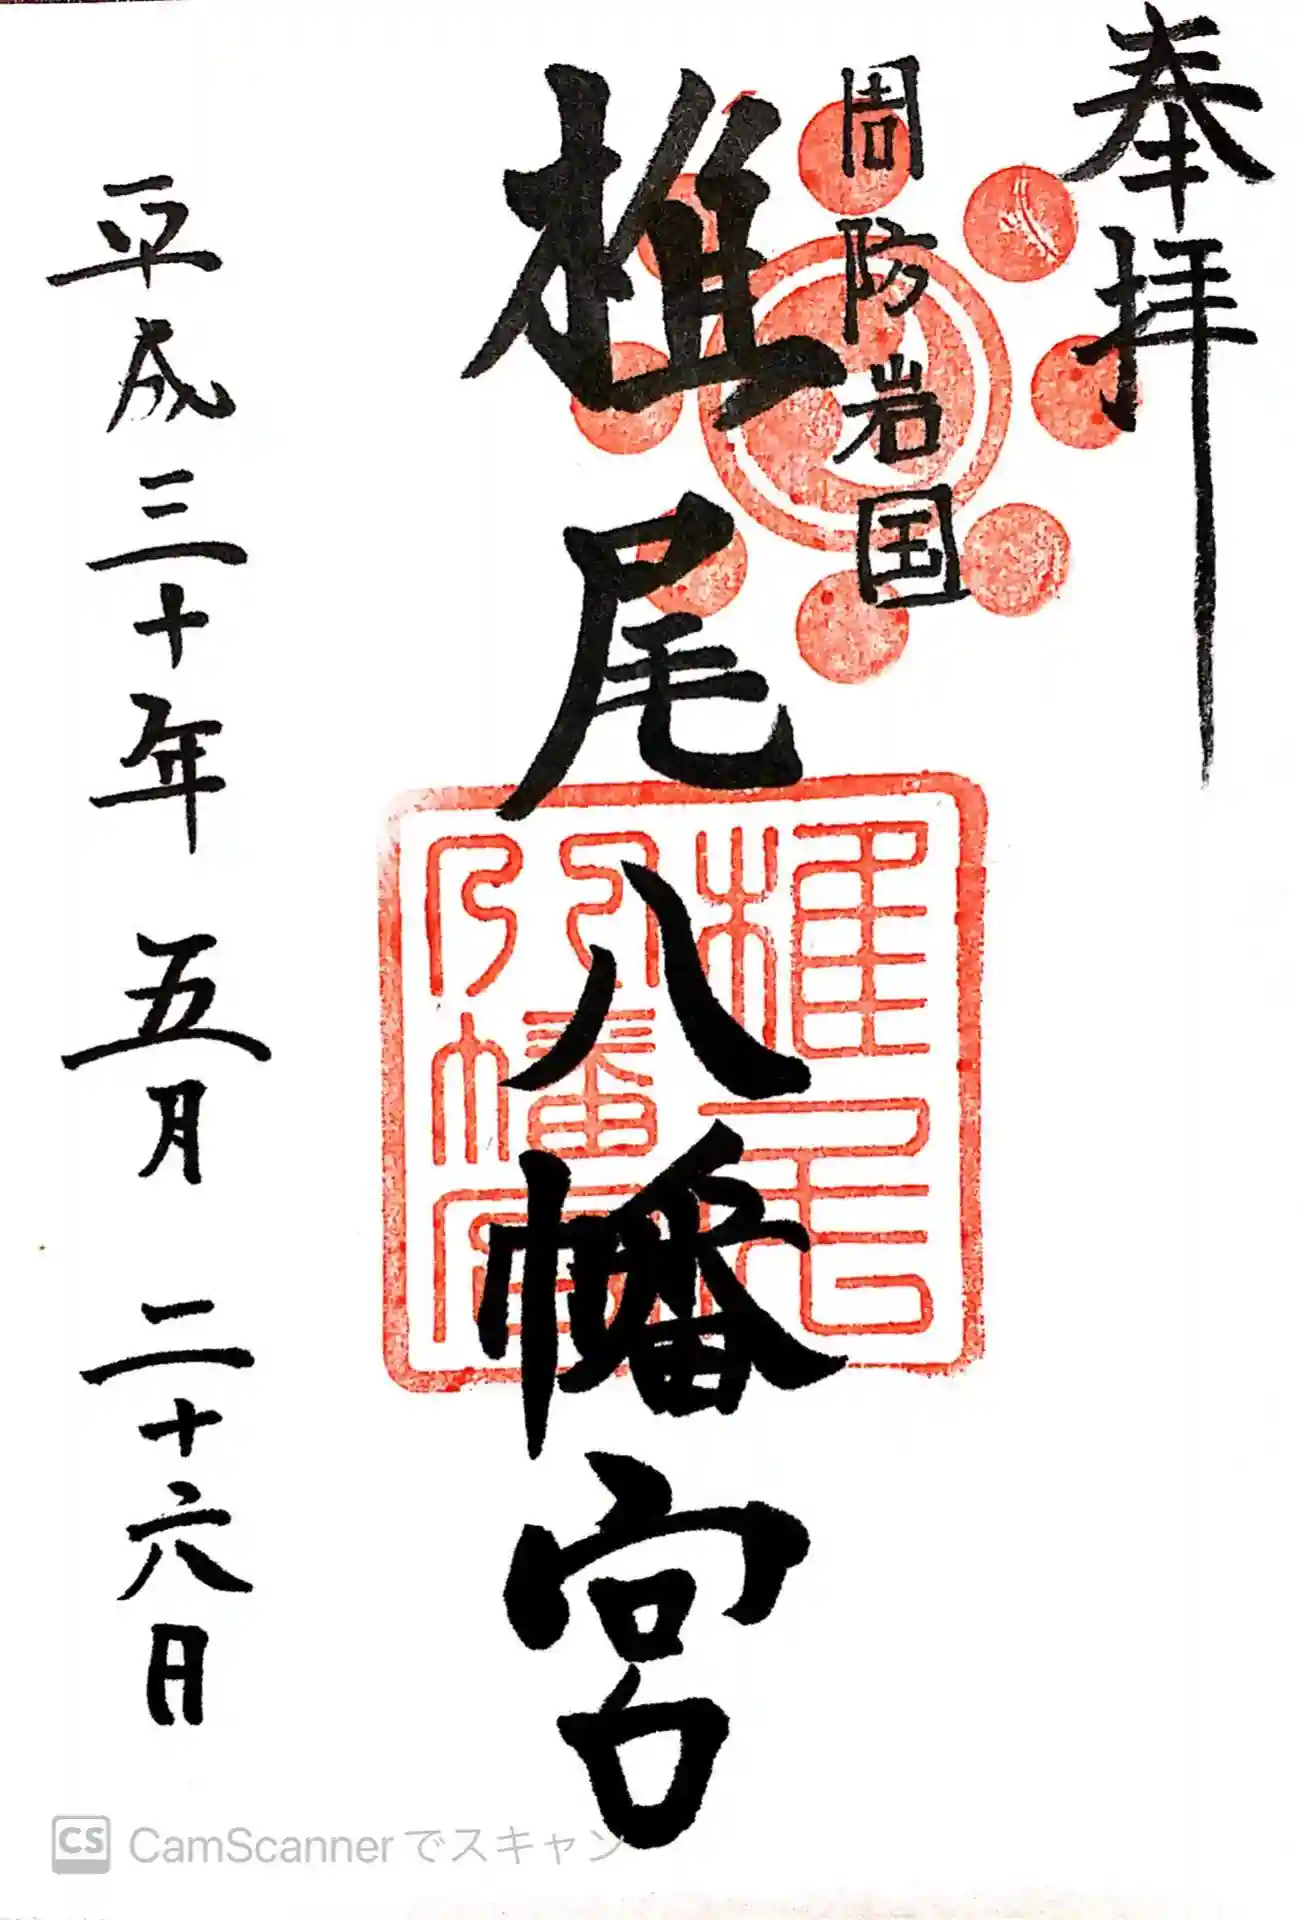 奉拝
周防岩国
椎尾八幡宮
椎尾
八幡宮
平成三十年五月二十六日
CS CamScannerでスキャン